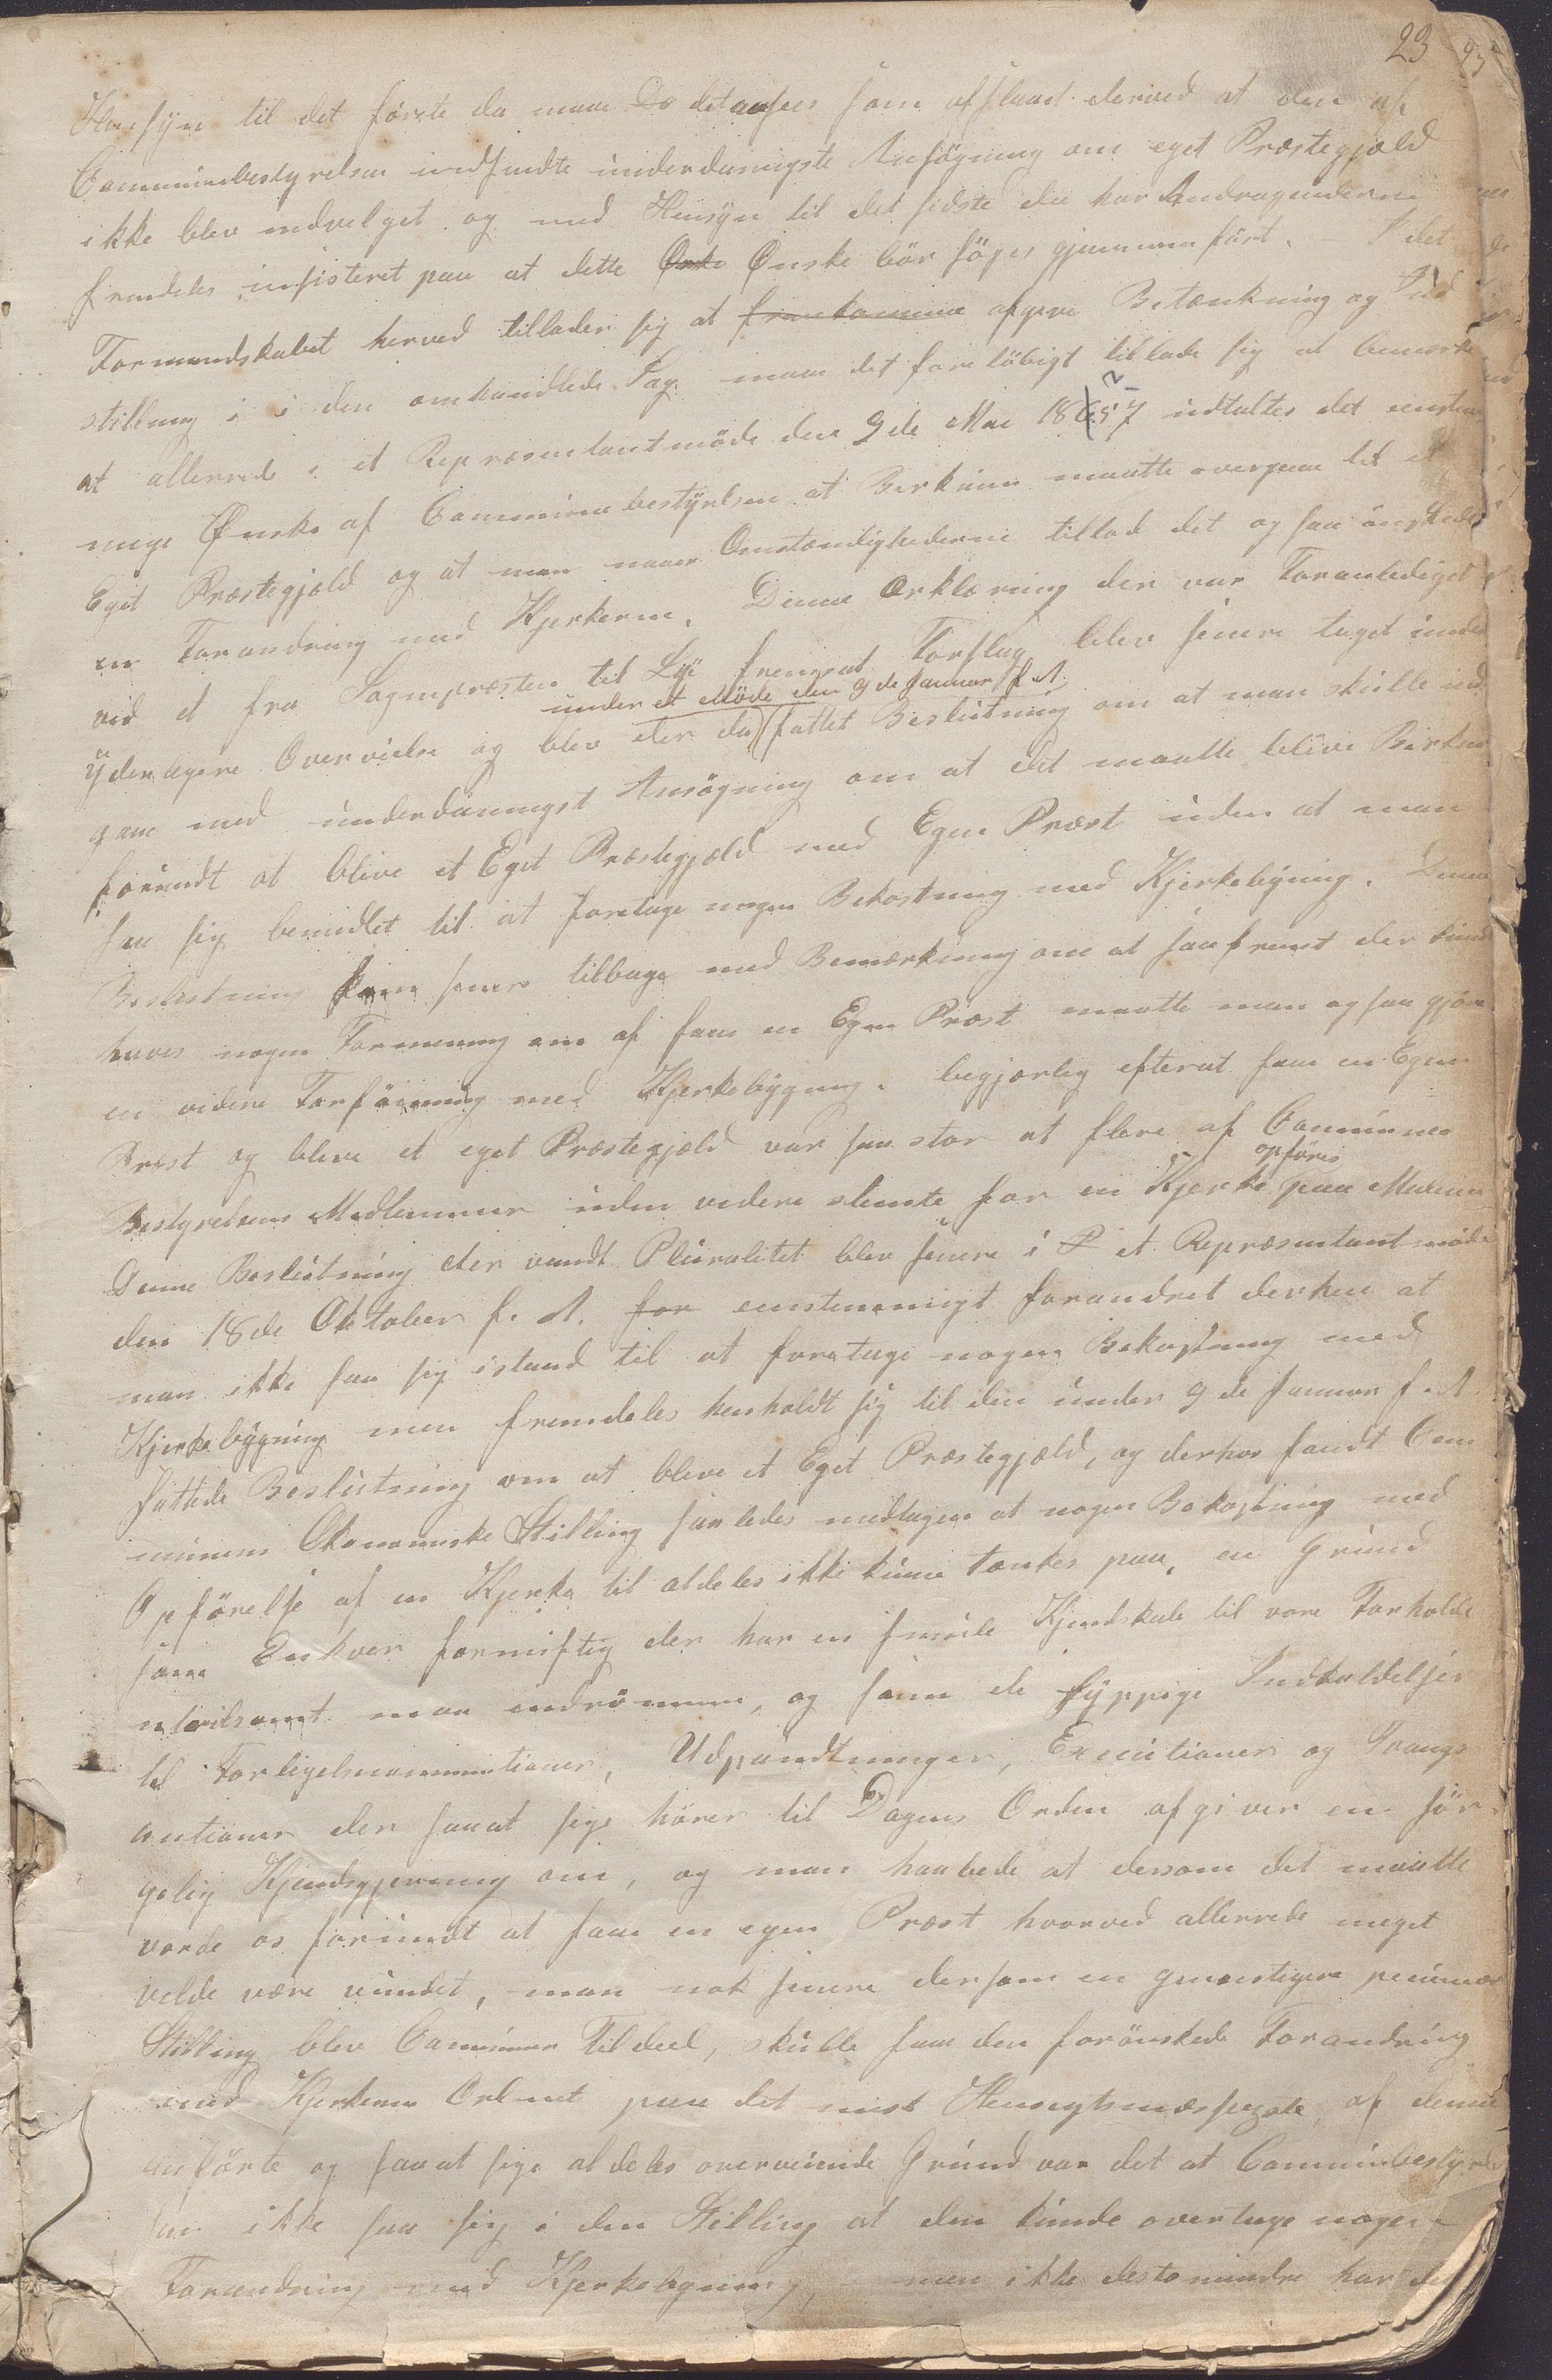 23
Hensyn til det første da maae De det ansees som afslaaet derved at den af
Communebestyrelsen indsendte underdanigste Ansøgning om eget Præstegjæld
ikke blev indvelget og med Hensyn til det sidste da har Andragenderne
fremdeles insisteret paa at dette Ønske Ønske bør søges gjennemført. – I det
Formandskabet herved tillader sig at fremkomme afgive Betænkning og Ind
stilling i i den omhandlede Sag maae det foreløbigt tillade sig at bemærke
at allerede i et Repræsentantmøde den 9de Mai 1857 udtaltes det eenstem
mige Ønske af Communebestyrelsen at Birkrim maatte overgaae til et
Eget Præstegjæld og at man naaer Omstændighederne tillod det og saa ønskede
en Forandring med Kjerkerne. Denne Erklæring der var Foranlediget
ved et fra Sognepræsten til Lye fremsat Forslag blev senere taget under
under et Møde den 9de Januar f. A.
yderligere Overveielse og blev der da fattet Beslutning om at man skulle ind
gaae med underdanigst Ansøgning om at det maatte blive Birkrim
forundt at blive et Eget Præstegjæld med Egen Præst uden at man
saa sig bemidlet til at foretage nogen Bekostning med Kjerkebygning. Denne
Beslutning kom senere tilbage med Bemærkning om at saafremt der kunde
haves nogen Formening om at faae en Egen Præst maatte man og saa gjøre
en videre Forføining med Kjerkebygning. begjærlig efterat faae en Egen
Præst og bleve et eget Præstegjæld var saa stor at flere af Communens
opføres
Bestyrelsens Medlemmer uden videre stemte for en Kjerke paa
Denne Beslutning der vandt Pluralitet blev senere i R et Repræsentantmøde
den 18de Oktober f. A. for eenstemmigt forandret derhen at
man ikke saa sig istand til at foretage nogen Bekostning med
Kjerkebygning men fremdeles henholdt sig til den under 9de Januar f. A.
fattede Beslutning om at bleve et Eget Præstegjæld, og derhos fandt Com
munens Økonomiske Stilling saaledes medtagen at nogen Bekostning med
Opførelse af en Kjerke til aldeles ikke kunne tænkes paa, en Grund
som Enhver fornuftig der har en smule Kjendskab til vore Forholde
utvilsomt maa indrømme, og som de hyppige Indkaldelser
til Forligelsescommissioner, Udpandtninger, Executioner og Tvangs
auctioner der saa at sige hører til Dagens Orden afgiver en sør
gelig Kjendsgjerning om, og man haabede at dersom det maatte
vorde os forundt at faae en egen Præst hvorved allerrede meget
vilde være vundet, man nok senere dersom en gunstigere pecuniær
Stilling blev Communen Tildeel, skulle faae den forønskede Forandring
med Kjerkerne Ordnet paa det mest Hensigtsmæssigste, af denne
anførte og saa at sige aldeles overveiende Grund var det at Communbestyrel
sen ikke saa sig i den Stilling at den kunde overtage nogen
Forandring med Kjerkebygning, men ikke destomindre har de